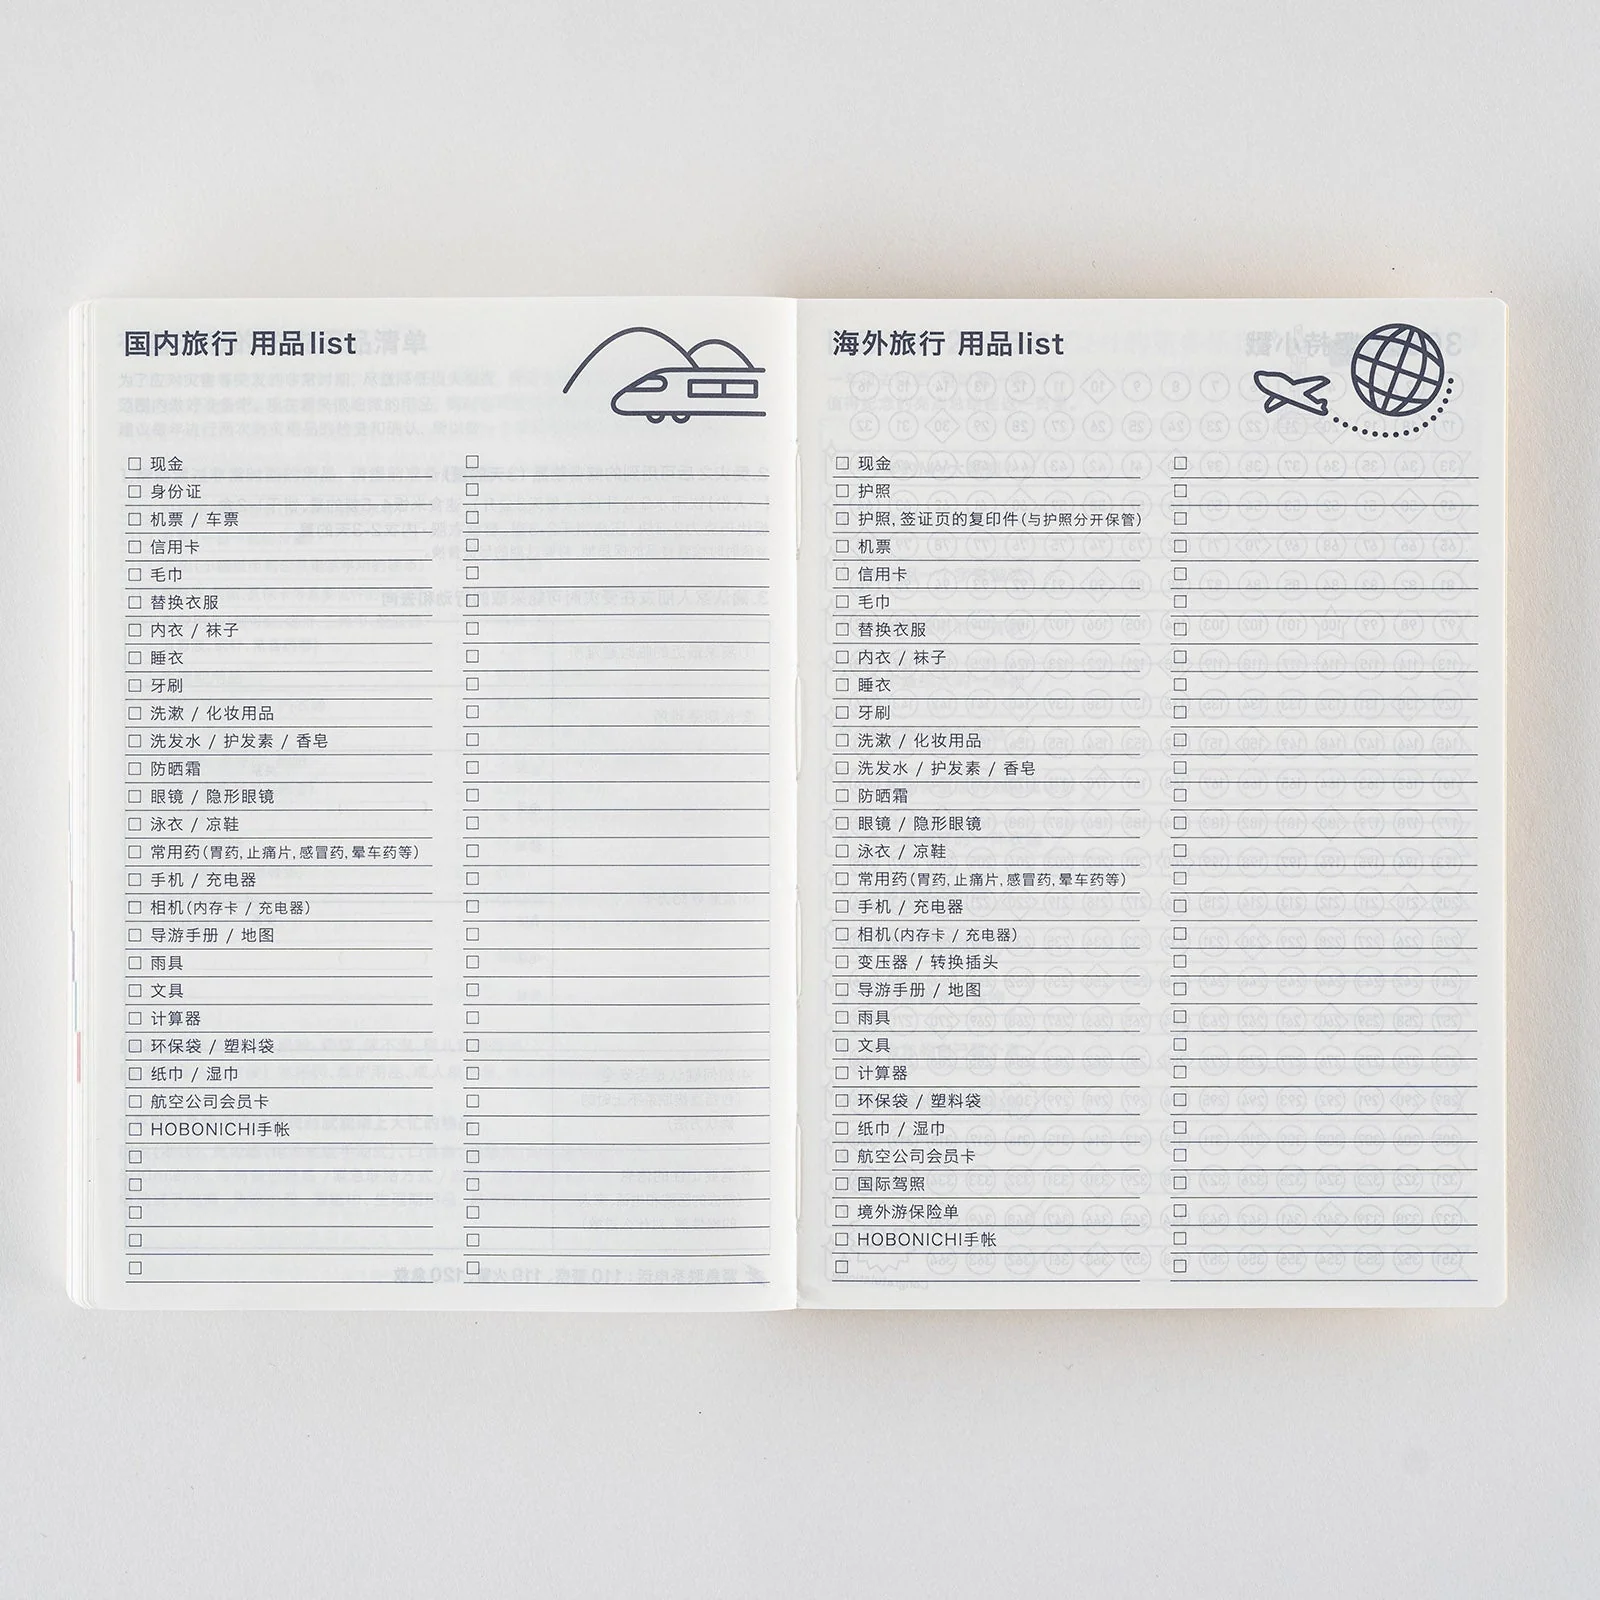 国内旅行 用品list
现金
身份证
机票 / 车票
信用卡
毛巾
替换衣服
内衣 / 袜子
睡衣
牙刷
洗漱 / 化妆用品
洗发水 / 护发素 / 香皂
防晒霜
眼镜 / 隐形眼镜
泳衣 / 凉鞋
常用药(胃药, 止痛片, 感冒药, 晕车药等)
手机 / 充电器
相机(内存卡 / 充电器)
导游手册 / 地图
雨具
文具
计算器
环保袋 / 塑料袋
纸巾 / 湿巾
航空公司会员卡
HOBONICHI手帐
海外旅行 用品list
现金
护照
护照, 签证页的复印件(与护照分开保管)
机票
信用卡
毛巾
替换衣服
内衣 / 袜子
睡衣
牙刷
洗漱 / 化妆用品
洗发水 / 护发素 / 香皂
防晒霜
眼镜 / 隐形眼镜
泳衣 / 凉鞋
常用药(胃药, 止痛片, 感冒药, 晕车药等)
手机 / 充电器
相机(内存卡 / 充电器)
变压器 / 转换插头
导游手册 / 地图
雨具
文具
计算器
环保袋 / 塑料袋
纸巾 / 湿巾
航空公司会员卡
国际驾照
境外游保险单
HOBONICHI手帐